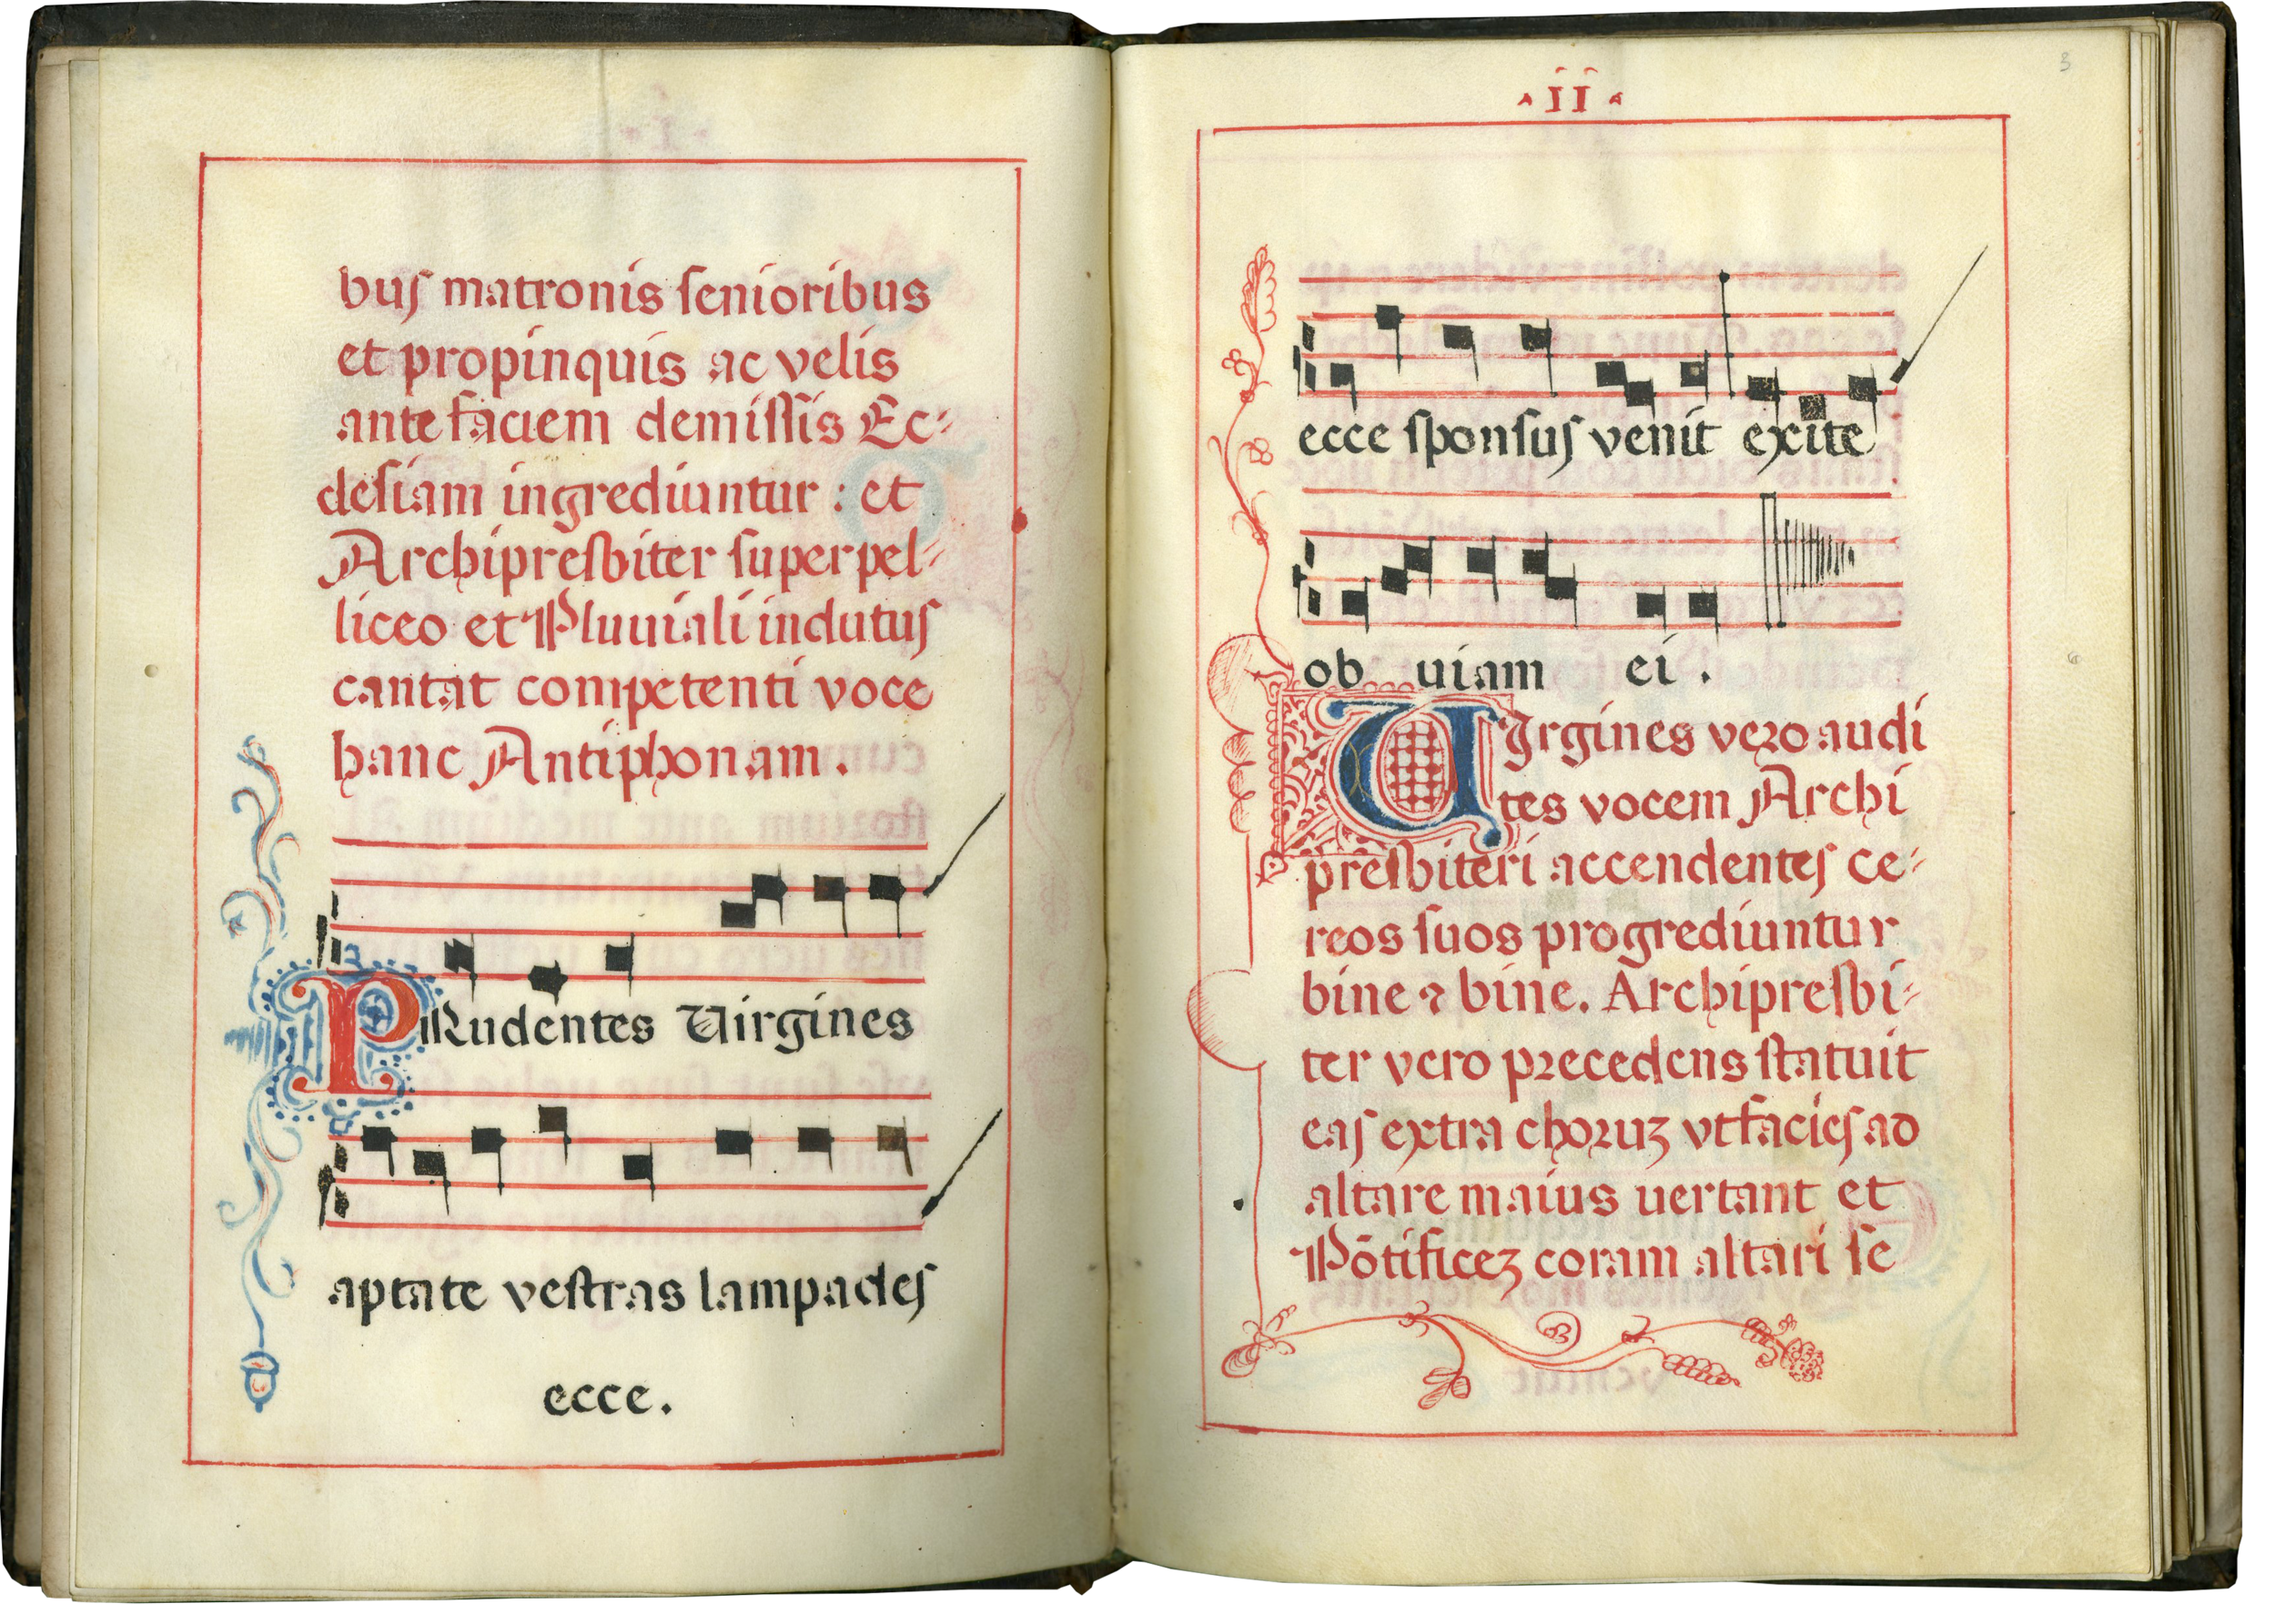 buſ matronis ſenioribus
et propinquis ac velis
ante faciem demiſſis Ec⸗
cleſiam ingrediuntur : et
Archipreſbiter ſuperpel⸗
liceo et Pluuiali indutuſ
cantat competenti voce
hanc Antiphonam .
PRudentes Virgines
aptate veſtras lampadeſ
ecce .
· II ·
3
ecce ſponſuſ venit exite
ob uiam ei .
VIrgines vero audi
tes vocem Archi
preſbiteri accendenteſ ce⸗
reos ſuos progrediuntur
bine ⁊ bine. Archipreſbi⸗
ter vero precedens ſtatuit
eaſ extra choruʒ vt facieſ ad
altare maius uertant et
Põtificeʒ coram altari ſe